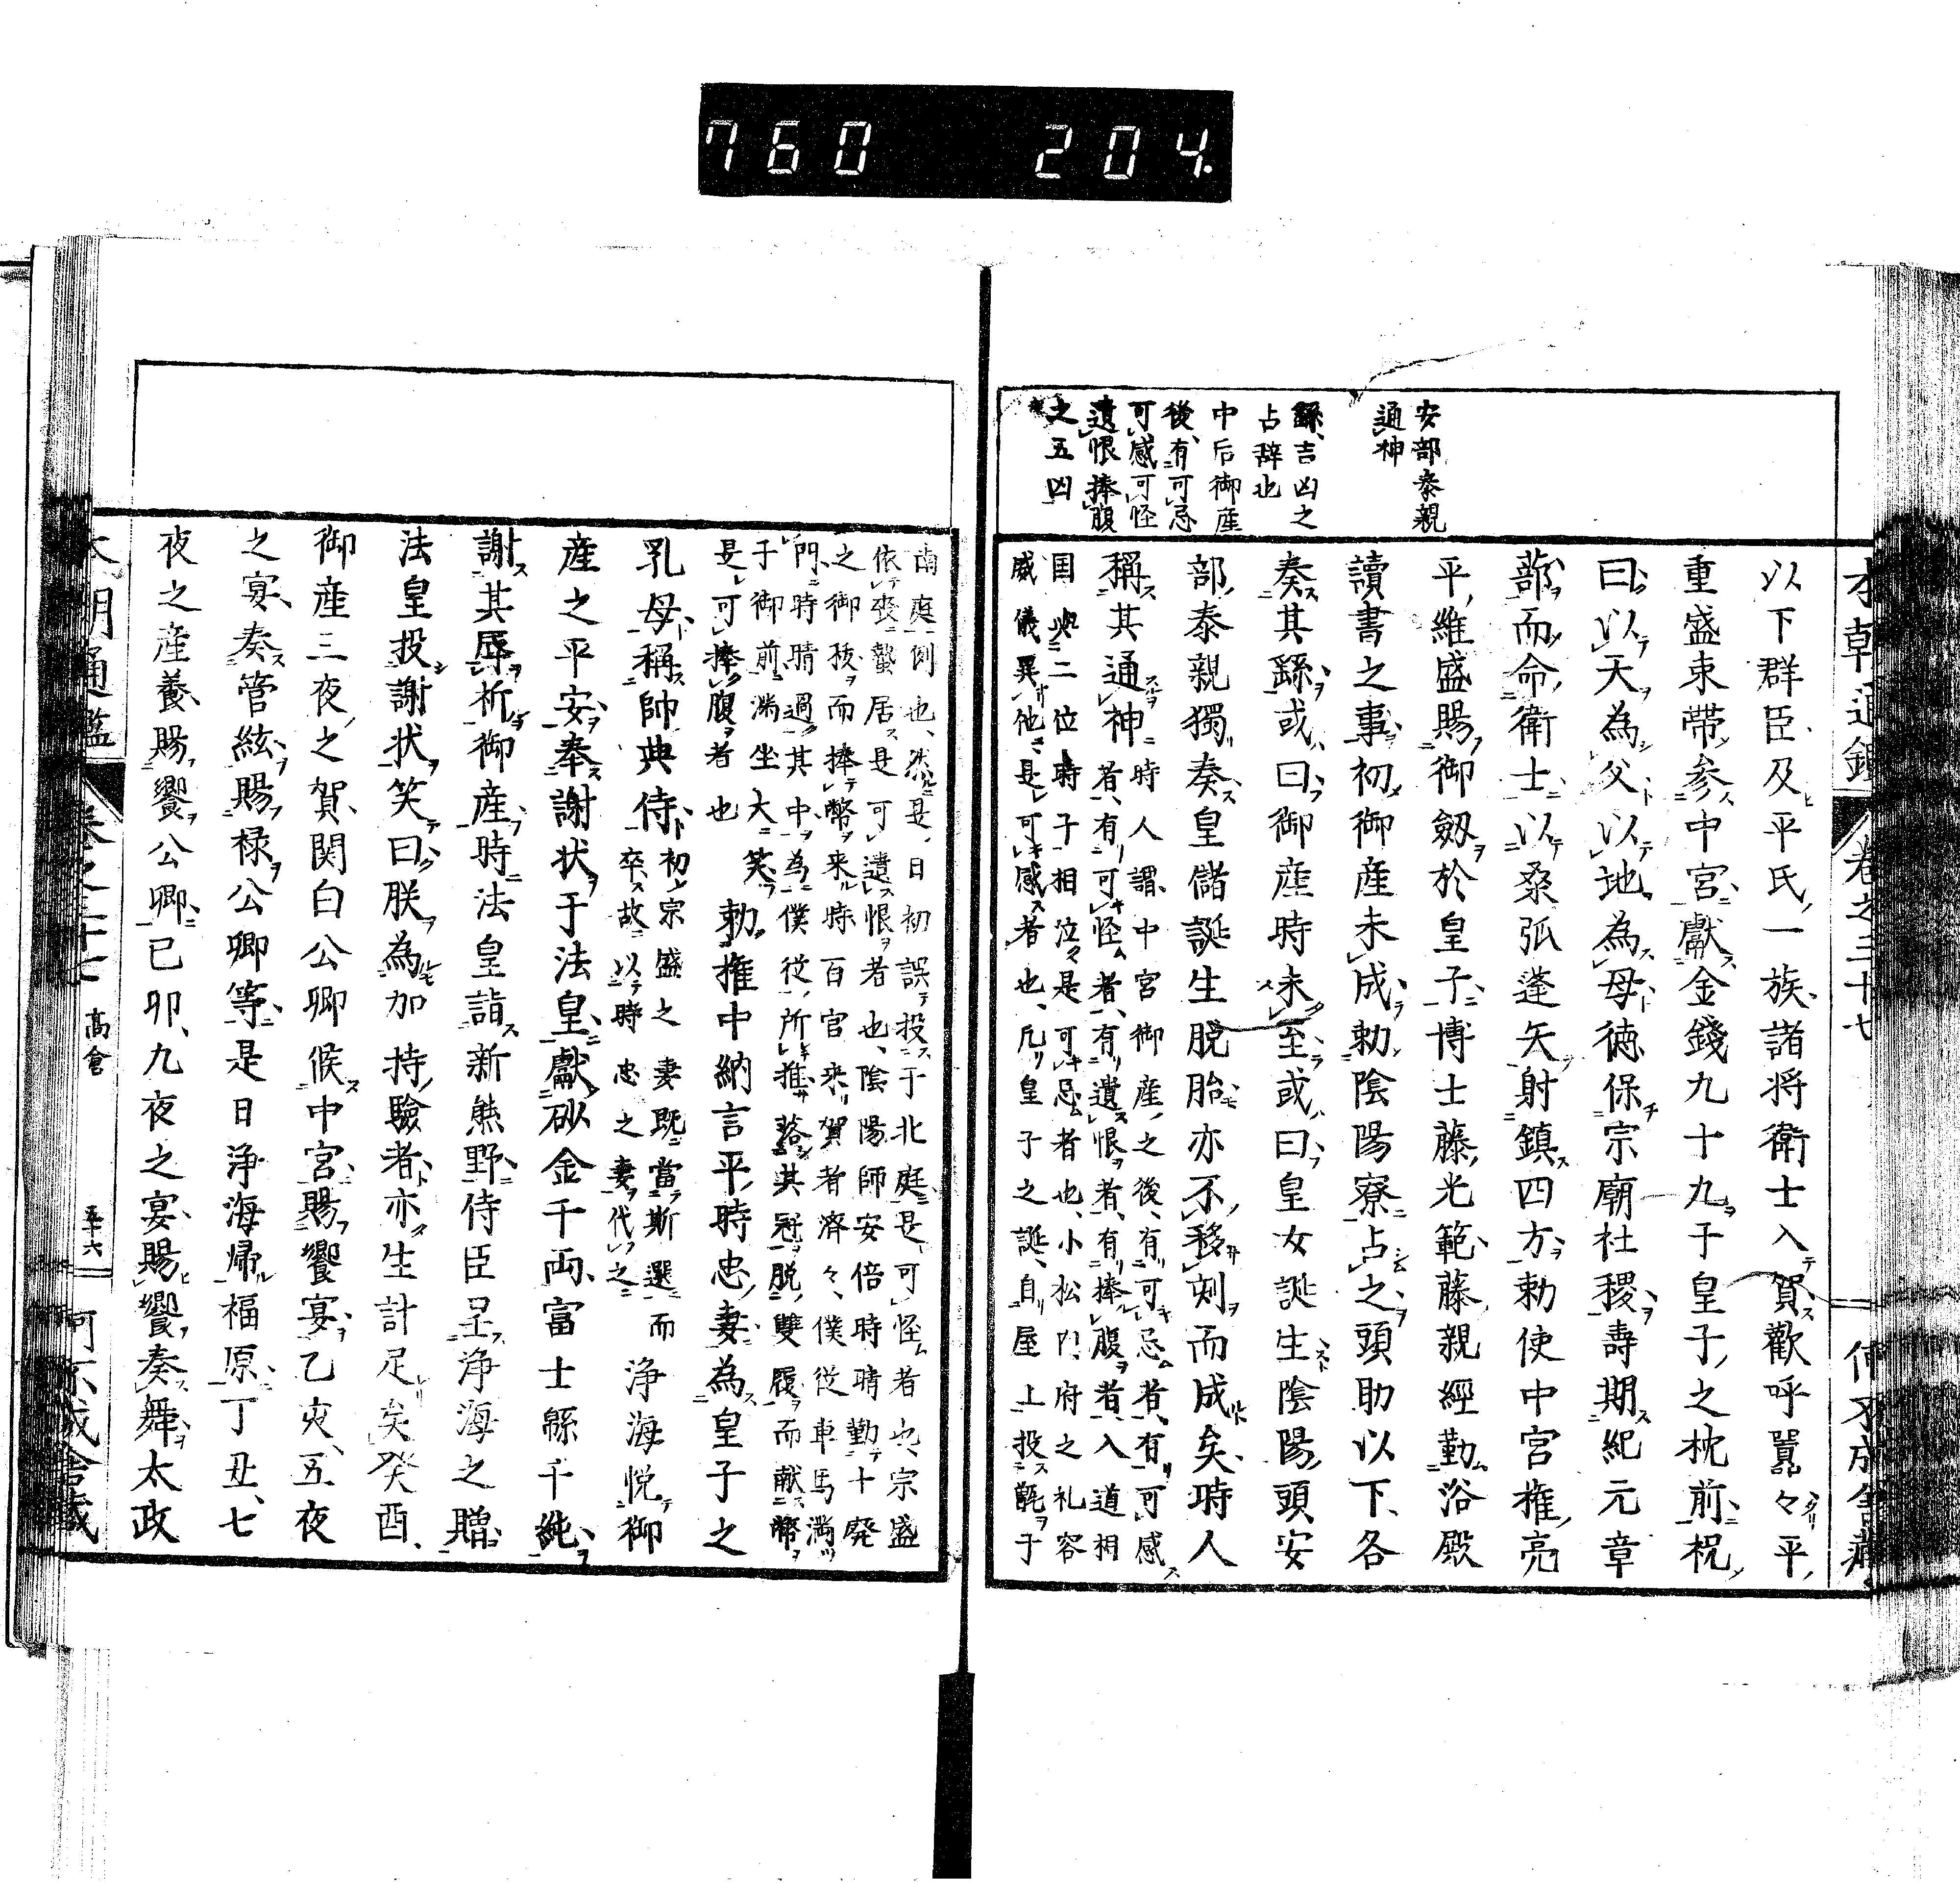 760 204
安部泰親
通神
繇吉凶之
占辞也
中后御産
後有可忌
可感可怪
遺恨捧腹
之五凶
以下群臣及平氏一族諸将衛士入賀歡呼囂々平
重盛束帯参中宮獻金錢九十九于皇子之枕前祝
曰以天為父以地為母徳保宗廟社稷壽期紀元章
蔀而命衛士以桑弧蓬矢射鎮四方勅使中宮権亮
平維盛賜御劔於皇子博士藤光範藤親經勤浴殿
讀書之事初御産未成勅陰陽寮占之頭助以下各
奏其繇或曰御産時未至或曰皇女誕生陰陽頭安
部泰親獨奏皇儲誕生脱胎亦不移刻而成矣時人
稱其通神
時人謂中宮御産之後有可忌者有可感
者有可怪者有遺恨者有捧腹者入道相
国與二位時子相泣是可忌者也小松内府之礼容
威儀異他是可感者也凡皇子之誕自屋上投甑于
本朝通鑑
卷之二十七
南庭例也然是日初誤投于北庭是可怪者也宗盛
依喪蟄居是可遺恨者也陰陽師安倍時晴勤十発
之御祓而捧幣来時百官来賀者濟々僕従車馬満
門時晴過其中為僕従所推落其冠脱雙履而献幣
子御前満坐大笑
是可捧腹者也
勅権中納言平時忠妻為皇子之
乳母稱帥典侍
初宗盛之妻既當斯選而
卒故以時忠之妻代之
浄海悦御
産之平安奉謝状于法皇獻砂金千両富士緜千純
謝其辱祈御産時法皇詣新熊野侍臣呈浄海之贈
法皇投謝状笑曰朕為加持驗者亦生計足矣癸酉
御産三夜之賀関白公卿候中宮賜饗宴乙亥五夜
之宴奏管絃賜禄公卿等是日浄海帰福原丁丑七
夜之産養賜饗公卿已卯九夜之宴賜饗奏舞太政
本朝通鑑
卷之二十七
高倉
五十六